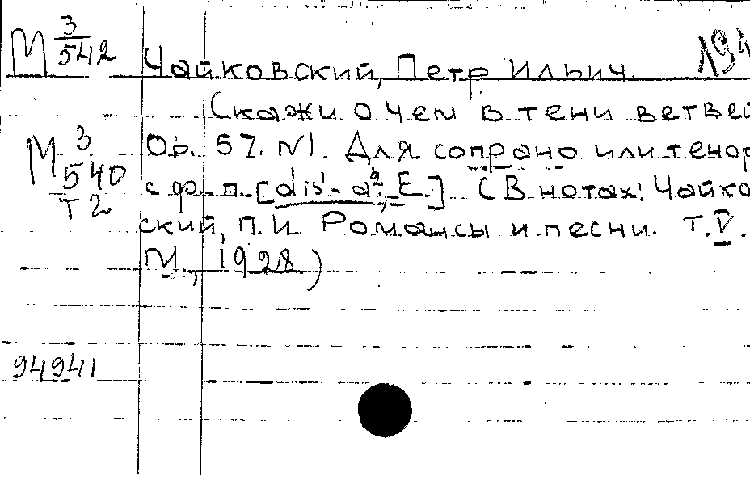 М 3/542 Чайковский, Петр Ильич. 191
Скажи о чем в тени ветвей
М 3/540 т 2 Ор. 57. №1. Для сопрано или тенор
с ф-п. [dis¹-a², E] (В нотах: Чайко
ский, П.И. Романсы и песни. Т. V.
М., 1928)
94941